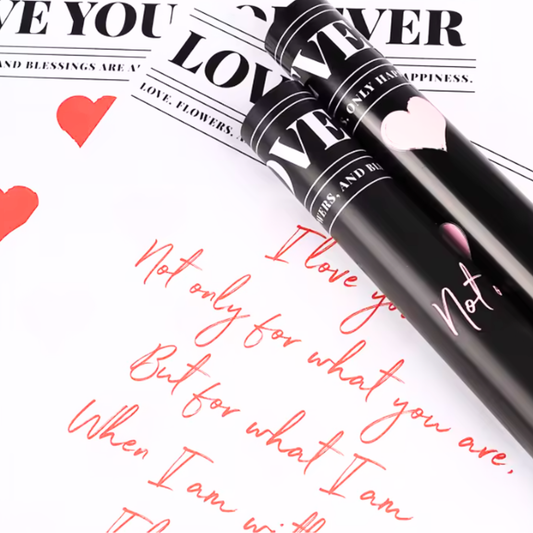 VE YOU
FOREVER
AND BLESSINGS ARE A
HAPPINESS.
LOVE
LOVE, FLOWERS,
OVE
ONLY HAP
OVE
OWERS, AND BL
Not
I love yo
Not only for what you are,
But for what I am
When I am with